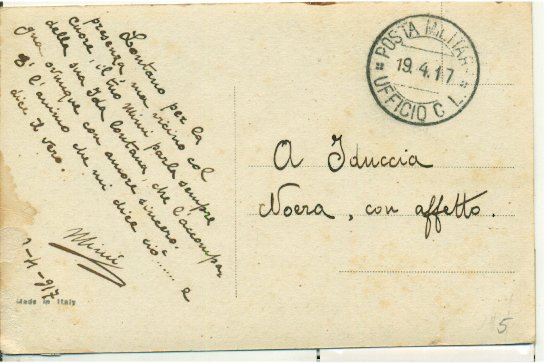 Lontano per la
presenza, ma vicino col
cuore, il tuo Mimì parla sempre
della sua Ida lontana, che l'accompa
gna ovunque con amore sincero.
È l'animo che mi dice ciò..... e
dice il vero.
Mimì
-4-917
Made in Italy
POSTA MILITARE
19.4.17
UFFICIO C L.
A Iduccia
Noera, con affetto.
5